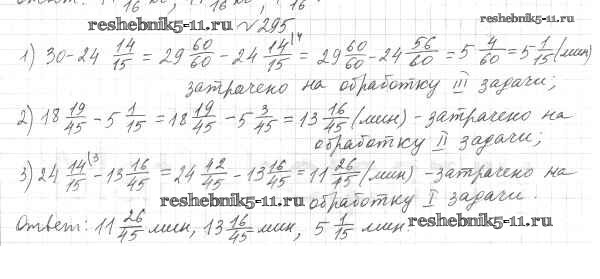 16 16 16
reshebnik5-11.ru № 295 reshebnik5-11.ru
1) 30 - 24 14/15 = 29 60/60 - 24 14/15 \4 = 29 60/60 - 24 56/60 = 5 4/60 = 5 1/15 (мин)
затрачено на обработку III задачи;
2) 18 19/45 - 5 1/15 = 18 19/45 - 5 3/45 = 13 16/45 (мин) - затрачено на
обработку II задачи;
3) 24 14/15 \3 - 13 16/45 = 24 42/45 - 13 16/45 = 11 26/45 (мин) - затрачено на
reshebnik5-11.ru обработку I задачи.
Ответ: 11 26/45 мин, 13 16/45 мин, 5 1/15 мин. reshebnik5-11.ru